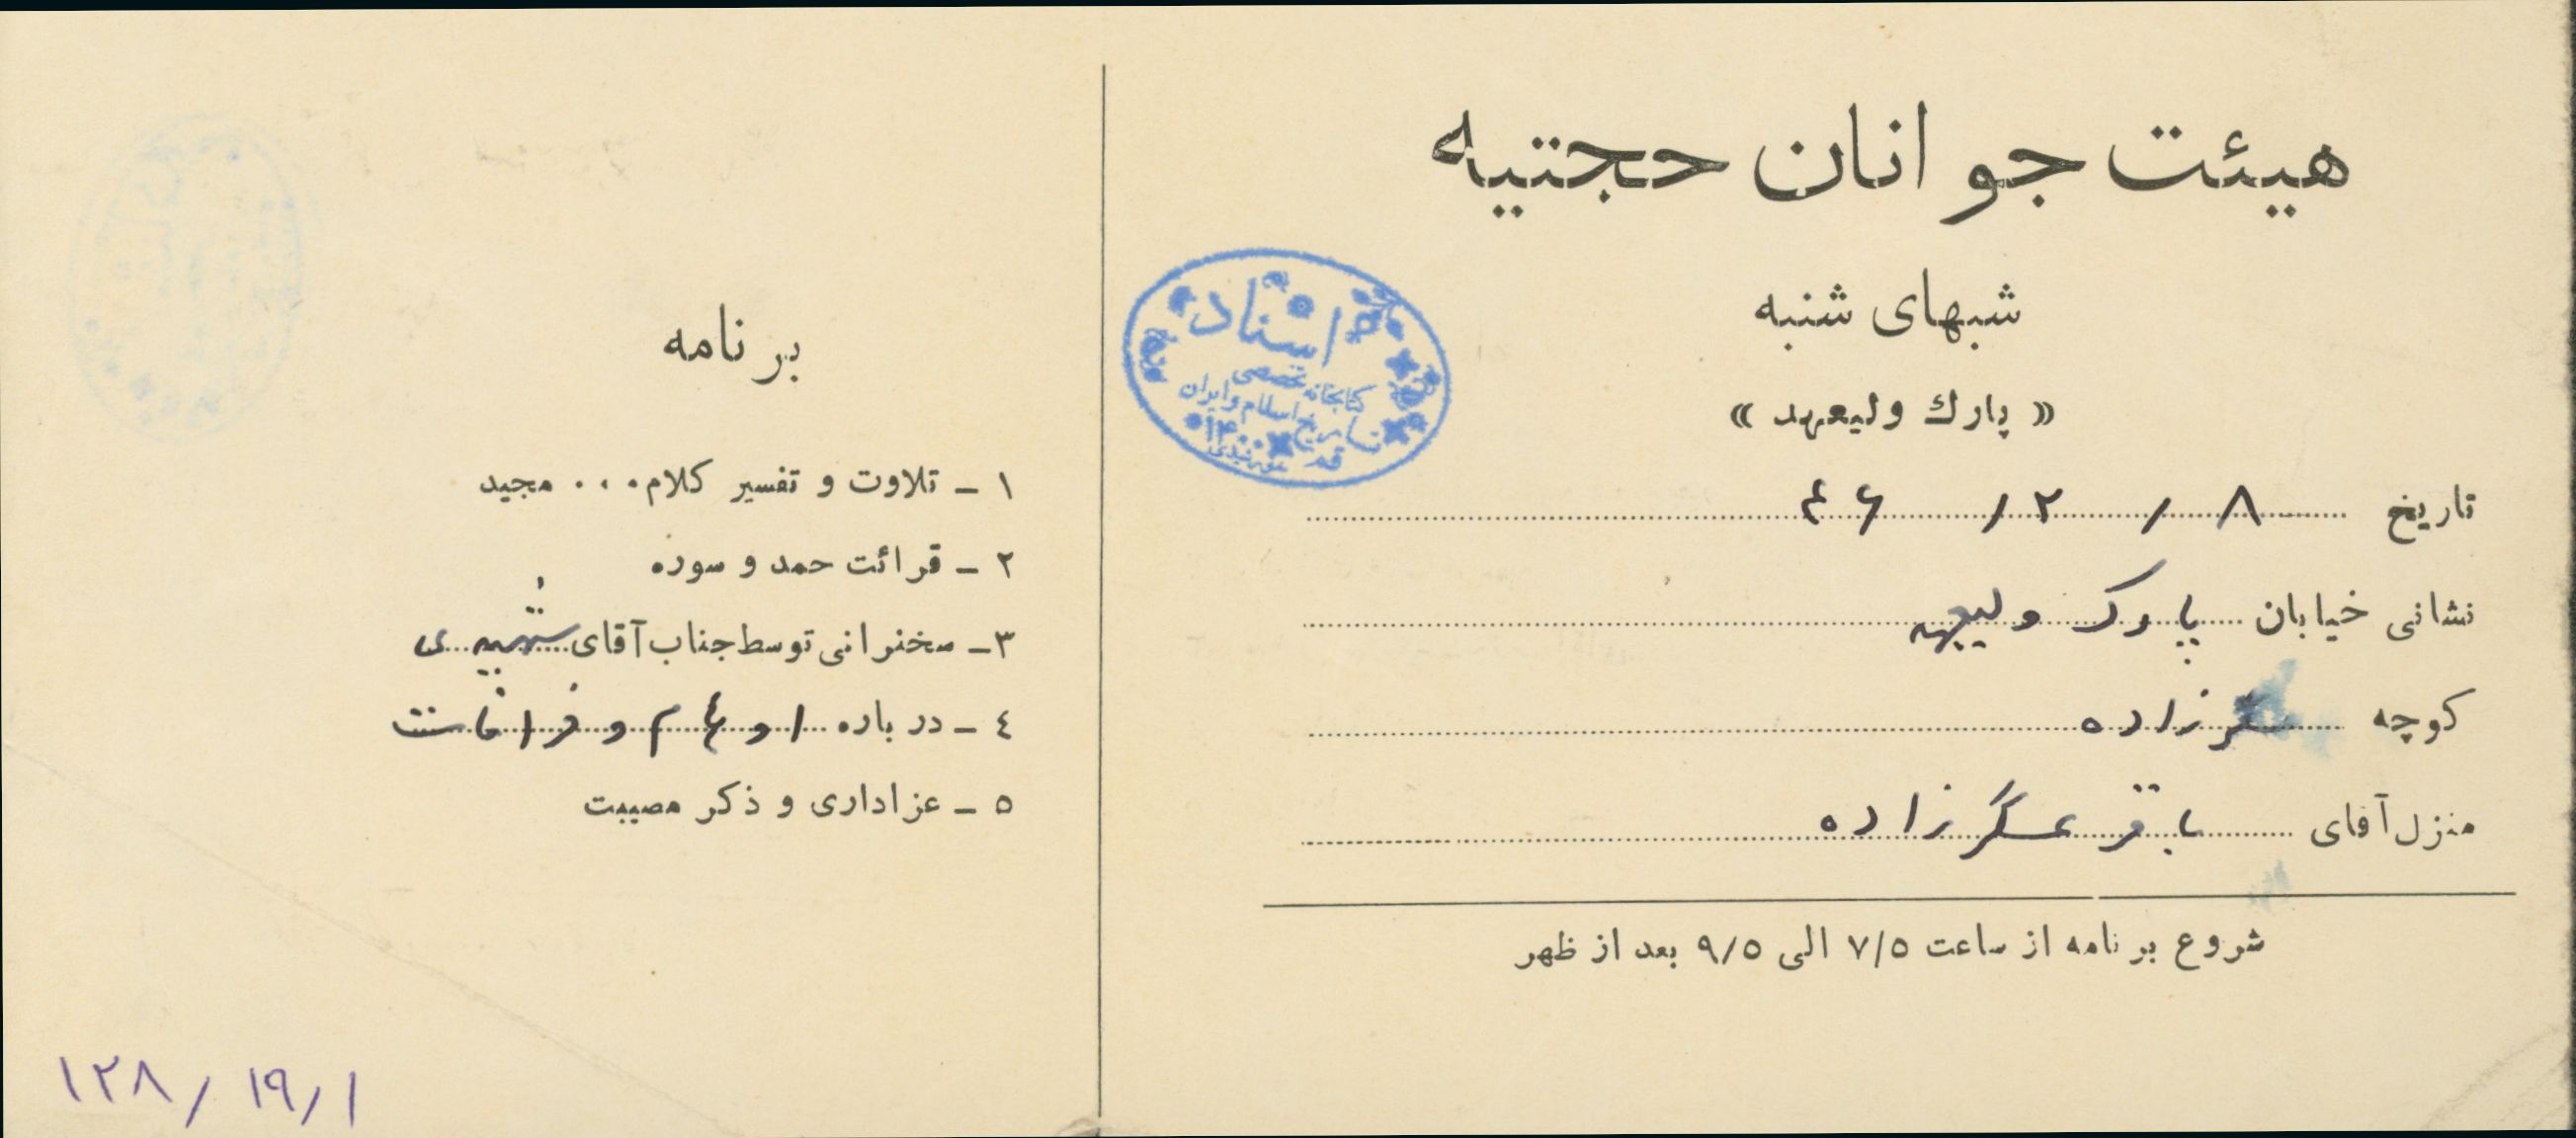 هیئت جوانان حجتیه
شبهای شنبه
« پارك ولیعهد »
تاریخ ۸ / ۲ / ۴۶
نشانی خیابان پارک ولیعهد
کوچه عسگرزاده
منزل آقای باقر عسگرزاده
شروع برنامه از ساعت ۷/۵ الی ۹/۵ بعد از ظهر
اسناد
کتابخانه تخصصی
تاریخ اسلام و ایران
۱۴۰۰
قم
برنامه
۱ - تلاوت و تفسیر کلام ... مجید
۲ - قرائت حمد و سوره
۳ - سخنرانی توسط جناب آقای شهیدی
٤ - در باره اوهام و خرافات
۵ - عزاداری و ذکر مصیبت
۱۲۸ / ۱۹ / ۱